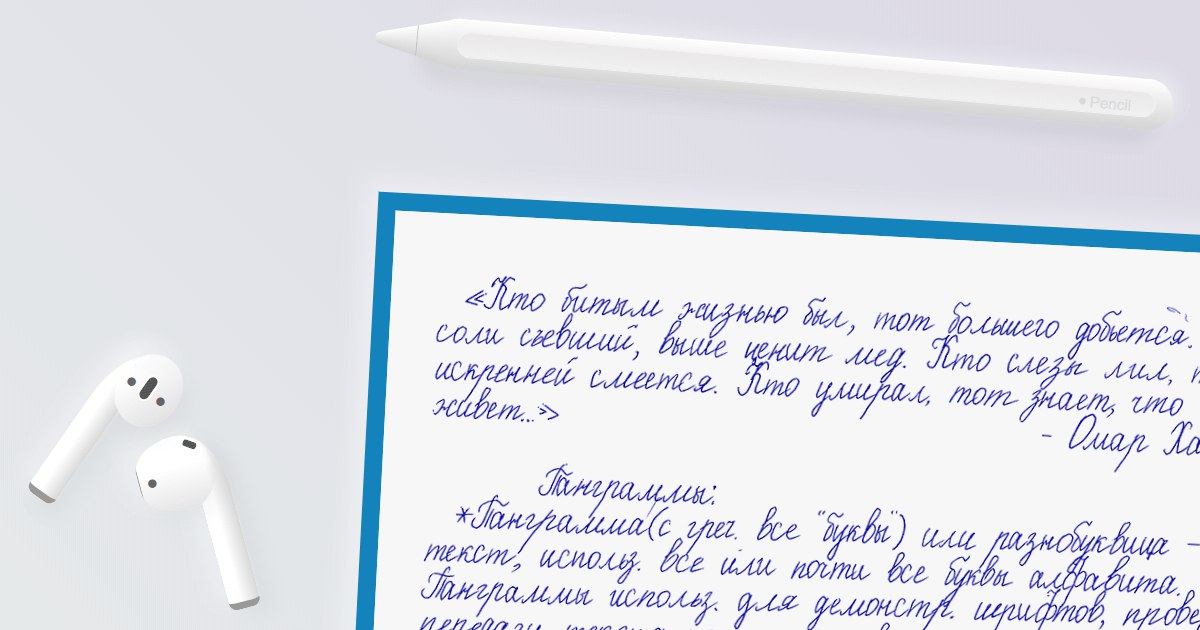 Pencil
«Кто битым жизнью был, тот большего добьется.
соли съевший, выше ценит мед. Кто слезы лил,
искренней смеется. Кто умирал, тот знает, что
живет..»
- Омар Ха
Панграммы:
*Панграмма(с греч. все "буквы") или разнобуквица -
текст, использ. все или почти все буквы алфавита.
Панграммы использ. для демонстр. шрифтов, прове
передачи текста